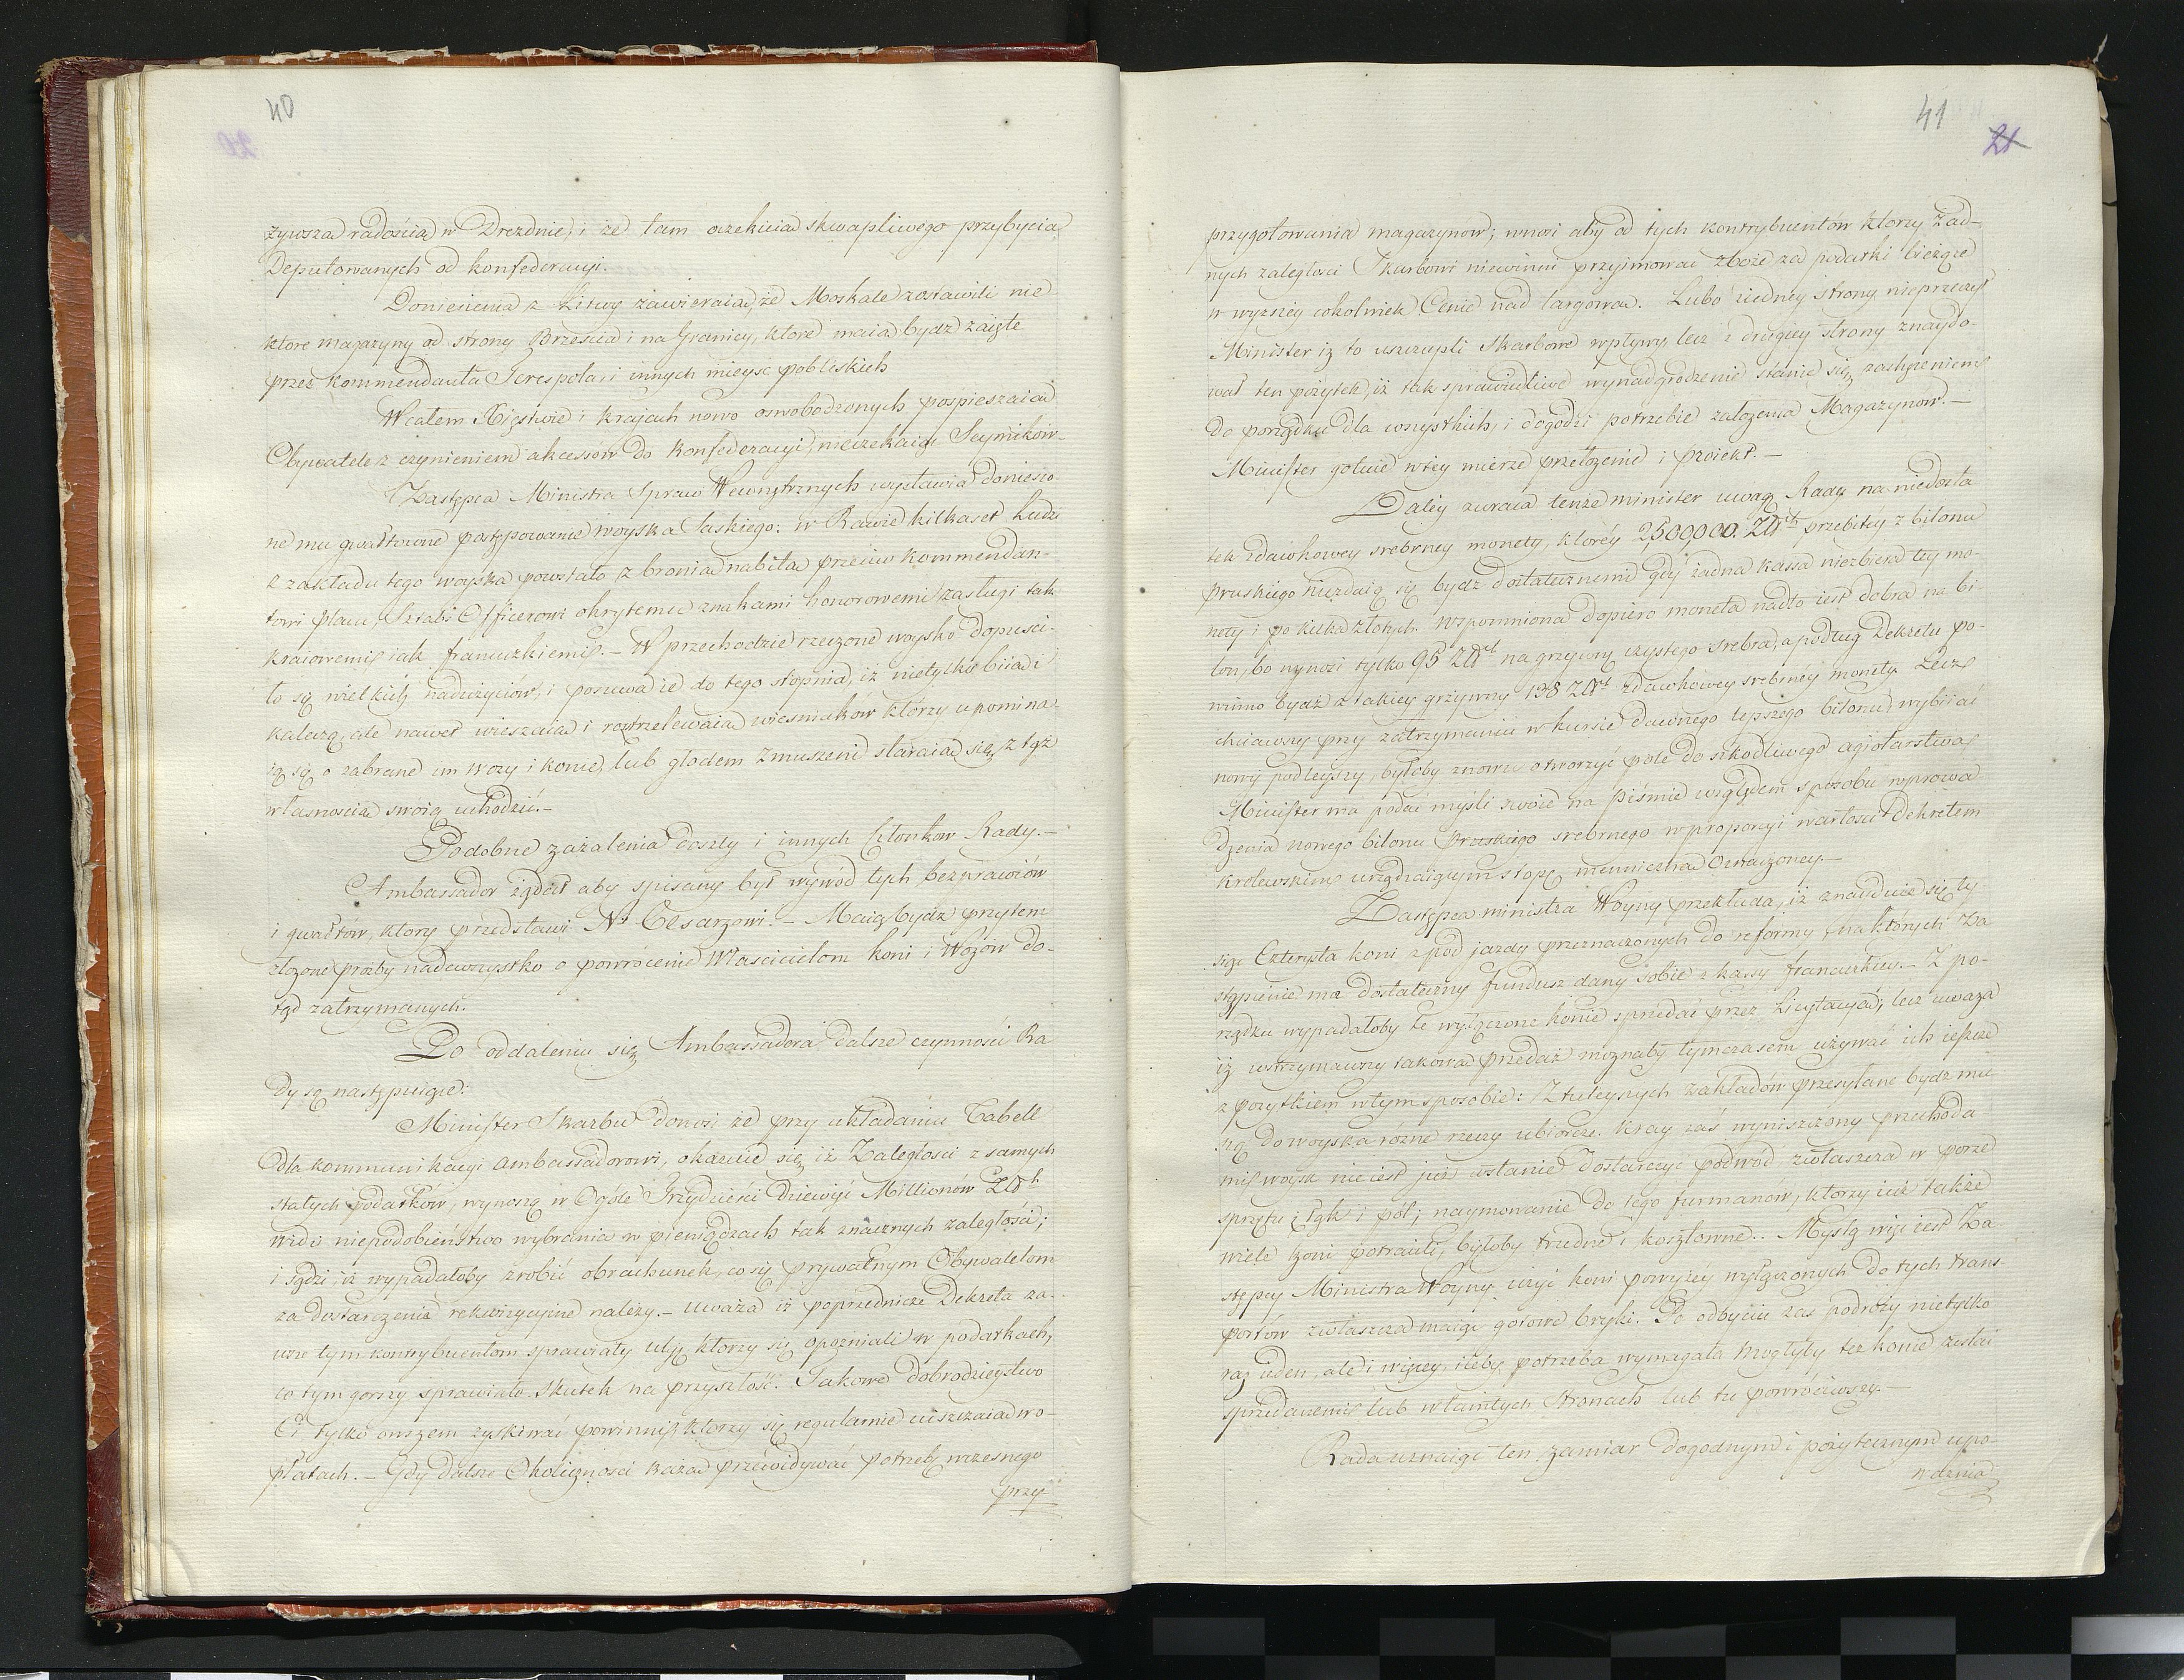 40
żywszą radością w Dreznie, i że tam oczekuią skwapliwego przybycia
Deputowanych od konfederacyi.
Doniesienia z Litwy zawieraią, że Moskale zostawili nie
które magazyny od strony Brześcia i na Granicy, które maią bydź zaięte
przez Kommendanta Terespola, i innych mieysc pobliskich
W całem Xięstwie i krajach nowo oswobodzonych pospieszaią
Obywatele z czynieniem akcessów do Konfederacyi, nieczekaiąc Seymików
Zastępca Ministra Spraw Wewnętrznych wystawia doniesio
ne mu gwałtowne postępowanie woyska Saskiego: w Rawie kilkaset Ludzi
z zakładu tego woyska powstało z bronią nabitą przeciw kommendan-
towi placu, Sztabs Officerowi okrytemu znakami honorowemi zasługi tak
kraiowemi iak francuzkiemi. – W przechodzie rzeczone woysko dopuści-
ło się wielkich nadużyciów, i posuwa ie do tego stopnia, iż nietylko biią i
kaleczą, ale nawet wieszaią i roztrzelewaią wiesniaków którzy upomina
ią się o zabrane im wozy i konie, lub głodem zmuszeni staraią się z tąż
własnością swoią uchodzić. –
Podobne zażalenia doszły i innych Członków Rady. –
Ambassador żądał aby spisany był wywód tych bezprawiów
i gwałtów, który przedstawi N° Cesarzowi. – Maią bydź przytem
złożone prożby nadewszystko o powrócenie Właścicielom koni i Wozów do-
tąd zatrzymanych.
Po oddaleniu się Ambassadora dalsze czynności Ra
dy są następuiące:
Minister Skarbu donosi że przy układaniu Tabell
dla kommunikacyi Ambassadorowi, okazuie się iż Zaległości z samych
stałych podatków, wynoszą w Ogóle Trzydzieści Dziewięć Millionów Złł
widzi niepodobieństwo wybrania w pieniądzach tak znacznych zaległości;
i sądzi iż wypadałoby zrobić obrachunek, co się prywatnym Obywatelom
za dostarczenia rekwizycyjne należy. – uważa iż poprzednicze Dekreta za-
wsze tym kontrybuentom sprawiały ulgę, którzy się opozniali w podatkach,
co tym gorszy sprawiało skutek na przyszłość. Takowe dobrodzieystwo
Ci tylko owszem zyskiwać powinni, którzy się regularnie uiszczaią w o-
płatach. – Gdy dalsze Okoliczności każą przewidywać potrzebę wczesnego
przy-
41
21
przygotowania magazynów; wnosi aby od tych kontrybuentów którzy żad-
nych zaległości Skarbowi niewinni przyjmować zboże za podatki bieżące
w wyższey cokolwiek Cenie nad targową. Lubo z iedney strony nieprzeczy
Minister iż to uszczupli Skarbowe wpływy, lecz z drugiey strony znaydo-
wał ten pożytek, iż tak sprawiedliwe wynadgrodzenie stanie się zachęceniem
do porządku dla wszystkich, i dogodzi potrzebie założenia Magazynów. –
Minister gotuie w tey mierze przełożenie i proiekt. –
Daley zwraca tenże minister uwagę Rady na niedosta
tek zdawkowey srebrney monety, którey 2,500,000. Złłch przebitey z bilonu
pruskiego niezdaią się bydź dostatecznemi gdy żadna kassa niezbiera tey mo-
nety i po kilka złotych. Wspomniona dopiero moneta nadto iest dobra na bi-
lon, bo wynosi tylko 95 Złłch na grzywny czystego srebra, a podług Dekretu po-
winno bydź z takiey grzywny 138 Złłch zdawkowey srebrney monety. Lecz
chciawszy przy zatrzymaniu w kursie dawnego lepszego bilonu, wybiiać
nowy podleyszy, byłoby znowu otworzyć pole do szkodliwego agiotarstwa
Minister ma podać myśli swoie na piśmie względem sposobu wprowa
dzenia nowego bilonu Pruskiego srebrnego w proporcyi wartości Dekretem
Królewskim urządzaiącym stopę menniczną oznaczoney. –
Zastępca ministra Woyny przekłada, iż znayduie się ty
siąc Czterysta koni z pod jazdy przeznaczonych do reformy, na których Za
stąpienie ma dostateczny fundusz dany sobie z kassy francuzkiey. – Z po-
rządku wypadałoby te wyłączone konie sprzedać przez Licytacyą; lecz uważa
iż wstrzymawszy takową przedaż możnaby tymczasem używać ich ieszcze
z pożytkiem w tym sposobie: Z tuteyszych zakładów przesyłane bydź mu
szą do woyska różne rzeczy ubiorcze. Kray zaś wyniszczony przechoda
mi woysk nie iest już w stanie dostarczyć podwod, zwłaszcza w porze
sprzętu z łąk i pól; naymowanie do tego furmanów, którzy iuż także
wiele koni potracili, byłoby trudne i kosztowne. Myślą więc iest Za
stępcy Ministra Woyny użyć koni powyżey wyłączonych do tych trans-
portów zwłaszcza maiąc gotowe bryki. Po odbyciu zaś podróży nietylko
raz ieden, ale i więcey, ileby potrzeba wymagała mogłyby też konie zostać
sprzedanemi lub w tamtych stronach lub tu powróciwszy. –
Rada uznaiąc ten zamiar dogodnym i pożytecznym upo-
ważnia